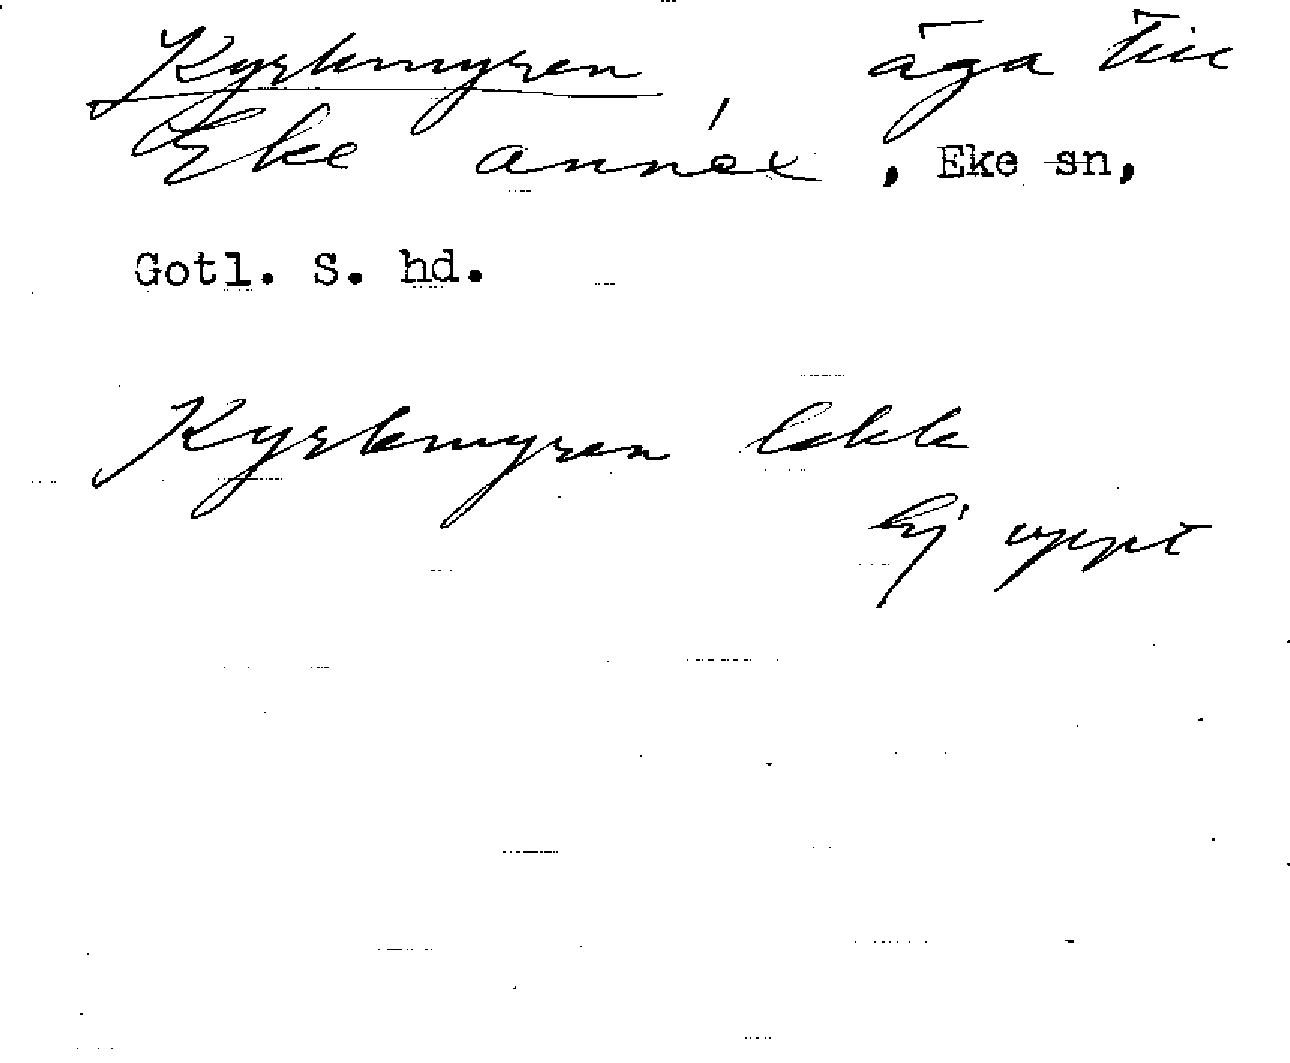 Kyrkmyren äga till
Eke annex, Eke sn,
Gotl. S. hd.
Kyrkmyren Ekk
Ej uppt